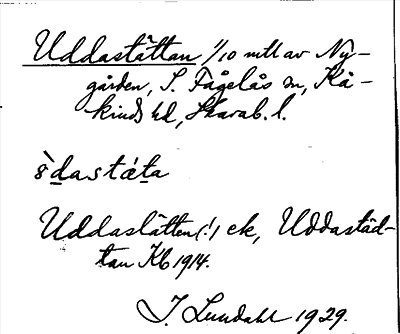 Uddastättan 1/10 mtl av Ny-
gården, S. Fågelås sn, Kå-
kinds hd, Skarab. l.
ödastáta
Uddaslätten (!) ek, Uddastäd-
tan Kb 1914.
J. Lundahl 1929.